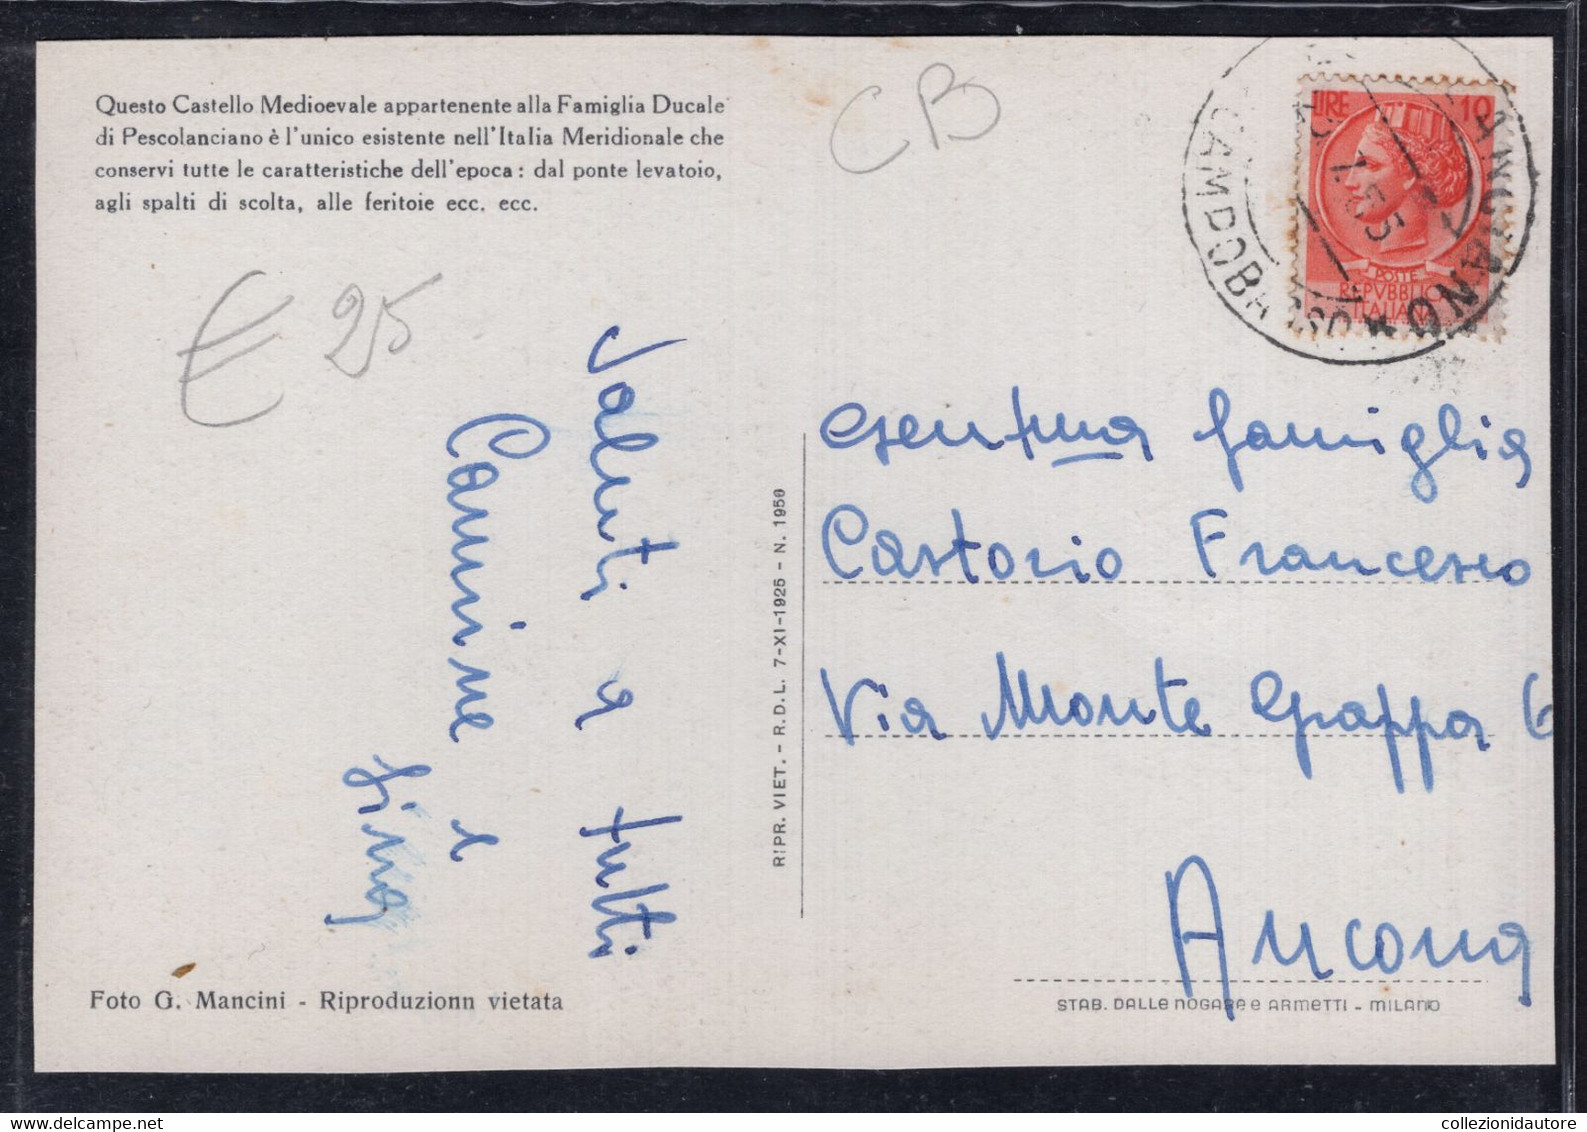 Questo Castello Medioevale appartenente alla Famiglia Ducale
di Pescolanciano è l'unico esistente nell'Italia Meridionale che
conservi tutte le caratteristiche dell'epoca: dal ponte levatoio,
agli spalti di scolta, alle feritoie ecc. ecc.
€ 25
CB
LIRE 10
POSTE
REPVBBLICA
ITALIANA
CAMPOBASSO
Saluti a tutti
Carmine e
RIPR. VIET. - R.D.L. 7-XI-1925 - N. 1950
famiglia
Castorio Francesco
Via Monte Grappa 6
Ancona
Foto G. Mancini - Riproduzionn vietata
STAB. DALLE NOGARE E ARMETTI - MILANO
collezionidautore